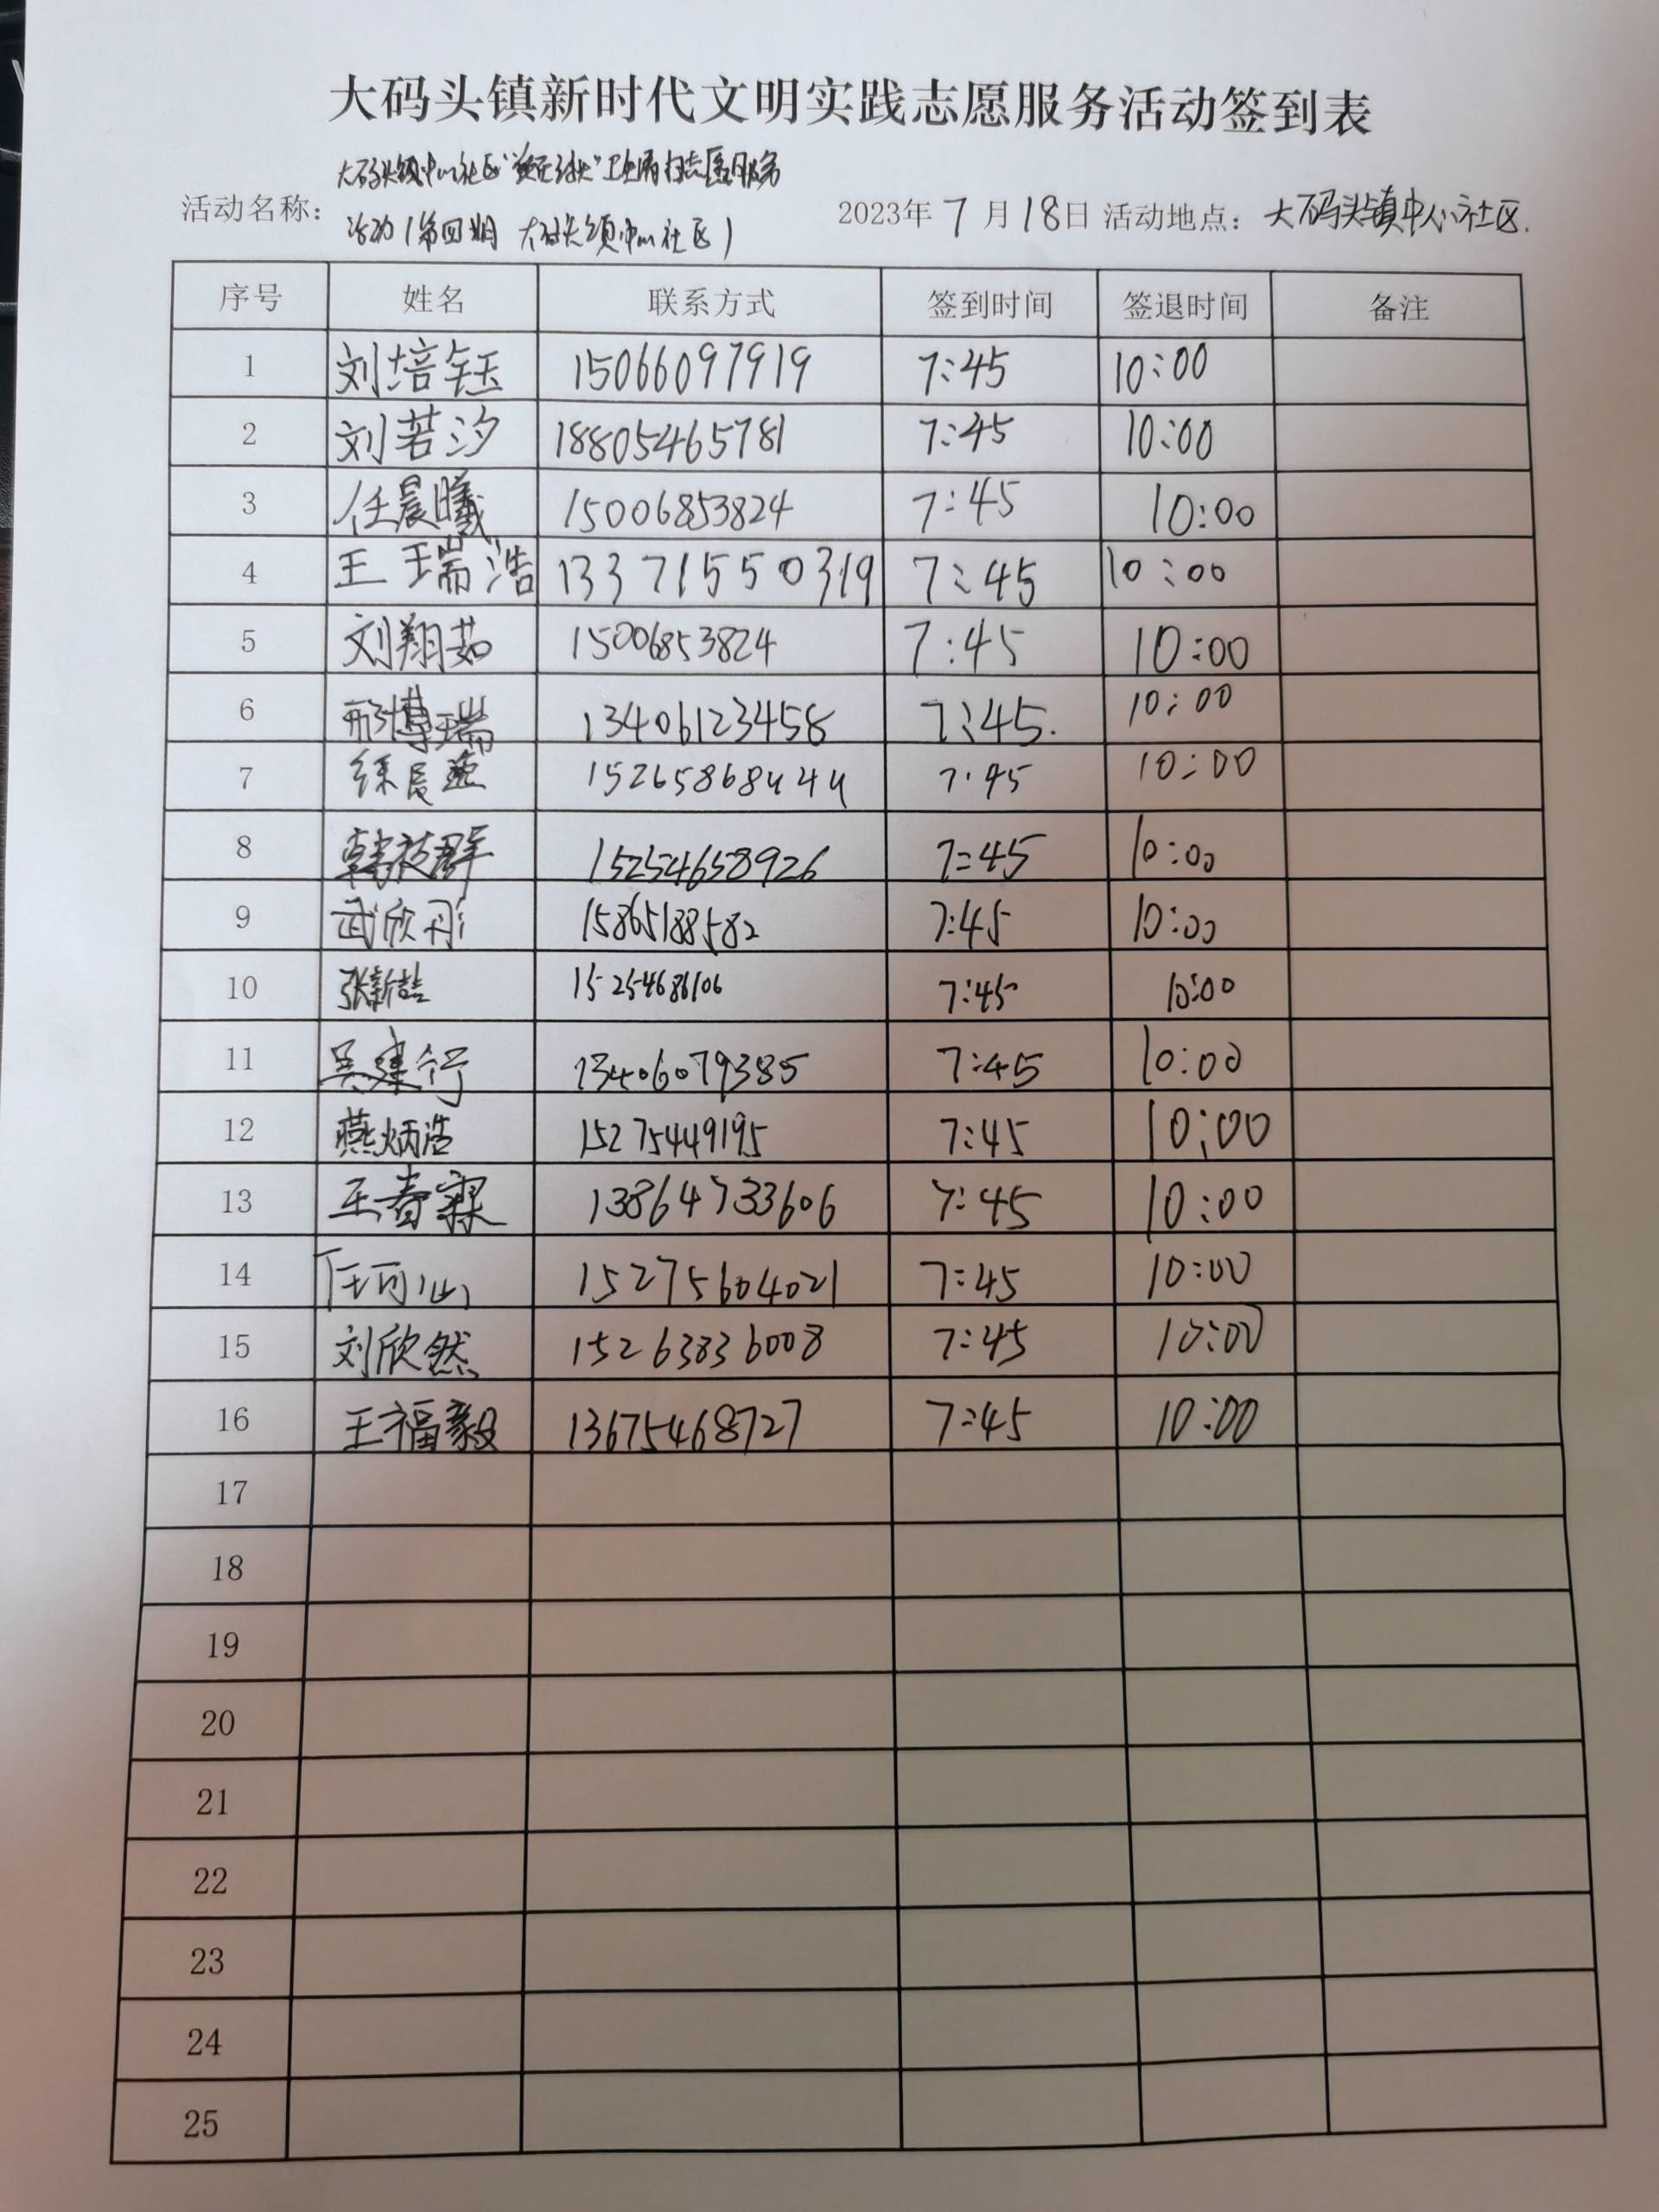 大码头镇新时代文明实践志愿服务活动签到表
大码头镇中心社区 卫生清扫志愿服务
活动名称: 活动(第四期 大码头镇中心社区) 2023年 7月18日 活动地点: 大码头镇中心社区.
序号 姓名 联系方式 签到时间 签退时间 备注
1 刘培钰 15066097919 7:45 10:00
2 刘若汐 18805465781 7:45 10:00
3 任晨曦 15006853824 7:45 10:00
4 王瑞浩 13371550319 7:45 10:00
5 刘翔茹 15006853824 7:45 10:00
6 邢博瑞 13406123458 7:45. 10:00
7 15265868444 7:45 10:00
8 15254658926 7:45 10:00
9 武欣彤 15865188582 7:45 10:00
10 张新喆 15254686106 7:45 10:00
11 吴建行 13406079385 7:45 10:00
12 燕炳浩 15275449195 7:45 10:00
13 王春霖 13864733606 7:45 10:00
14 任可心 15275604021 7:45 10:00
15 刘欣然 15263836008 7:45 10:00
16 王福毅 13675468727 7:45 10:00
17
18
19
20
21
22
23
24
25